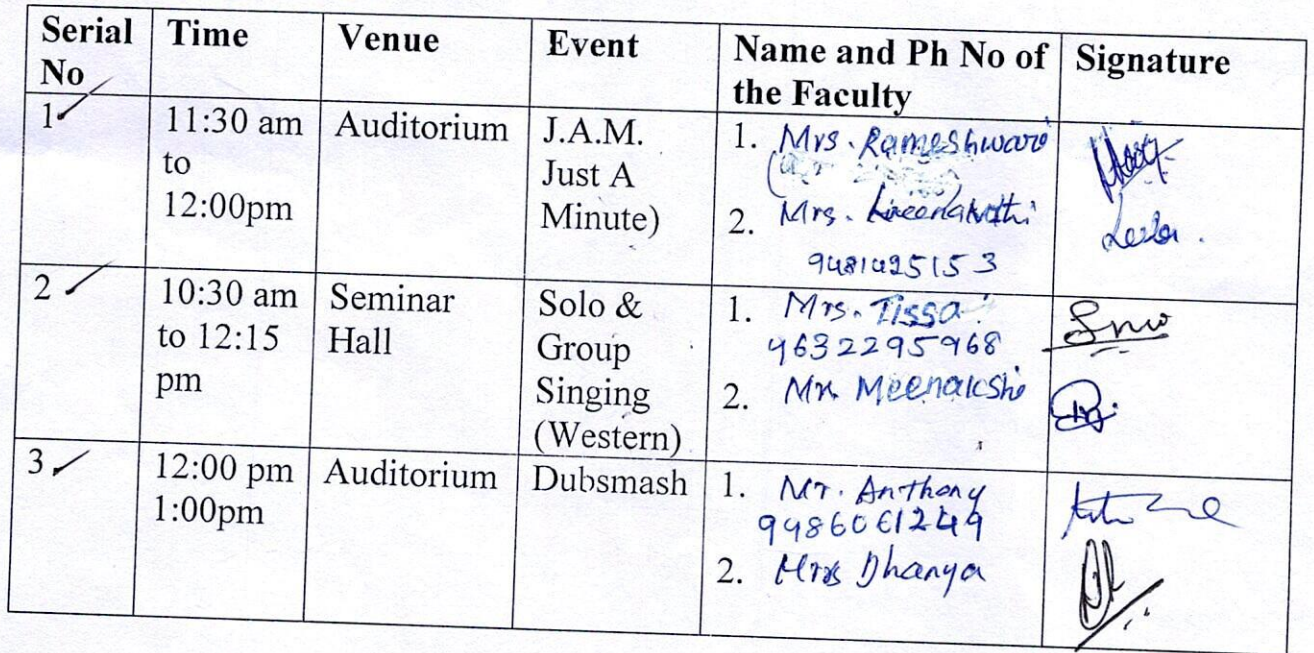 Serial No
Time
Venue
Event
Name and Ph No of
the Faculty
Signature
1
11:30 am
to
12:00pm
Auditorium
J.A.M.
Just A
Minute)
1. Mrs. Rameshwari
2. Mrs.
9481425153
2
10:30 am
to 12:15
pm
Seminar
Hall
Solo &
Group
Singing
(Western)
1. Mrs. Tissa
9632295968
2. Meenakshi
3
12:00 pm
1:00pm
Auditorium
Dubsmash
1. Mr. Anthony
9986061249
2. Mrs Dhanya